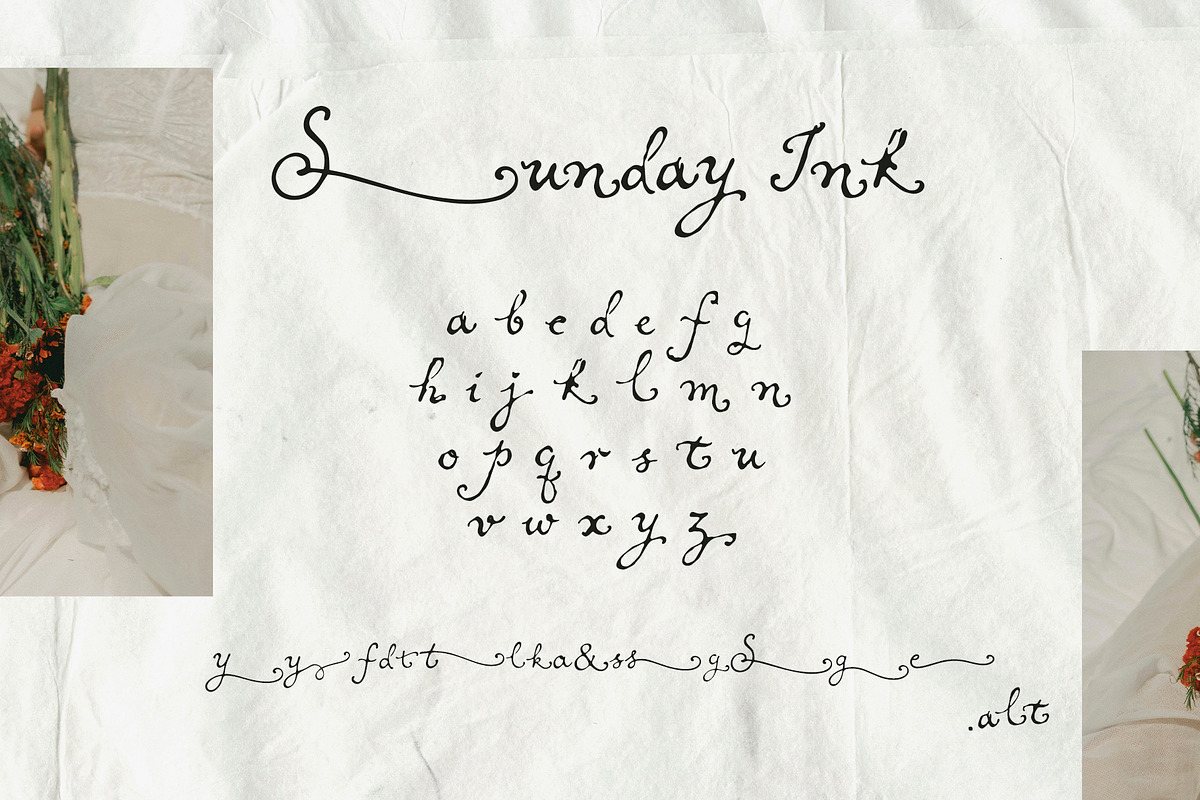 Sunday Ink
a b c d e f g
h i j k l m n
o p q r s t u
v w x y z
y y fdtt lka&ss gS g e
.alt